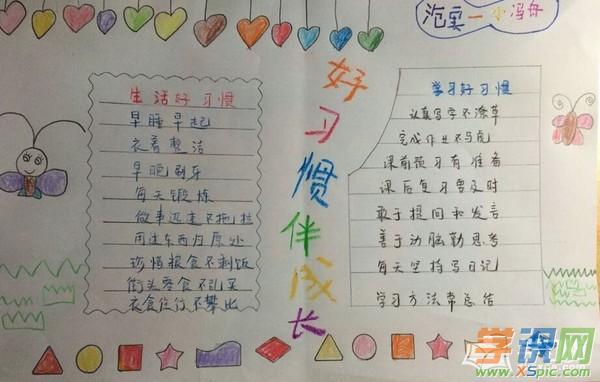 范実一小冯舟
好习惯伴成长
生活好习惯
早睡早起
衣着整洁
早晚刷牙
每天锻炼
做事迅速不拖拉
用过东西放原处
珍惜粮食不剩饭
街头零食不乱买
衣食住行不攀比
学习好习惯
认真写字不潦草
完成作业不马虎
课前预习有准备
课后复习要及时
敢于提问和发言
善于动脑勤思考
每天坚持写日记
学习方法常总结
学课网
www.XSpic.com